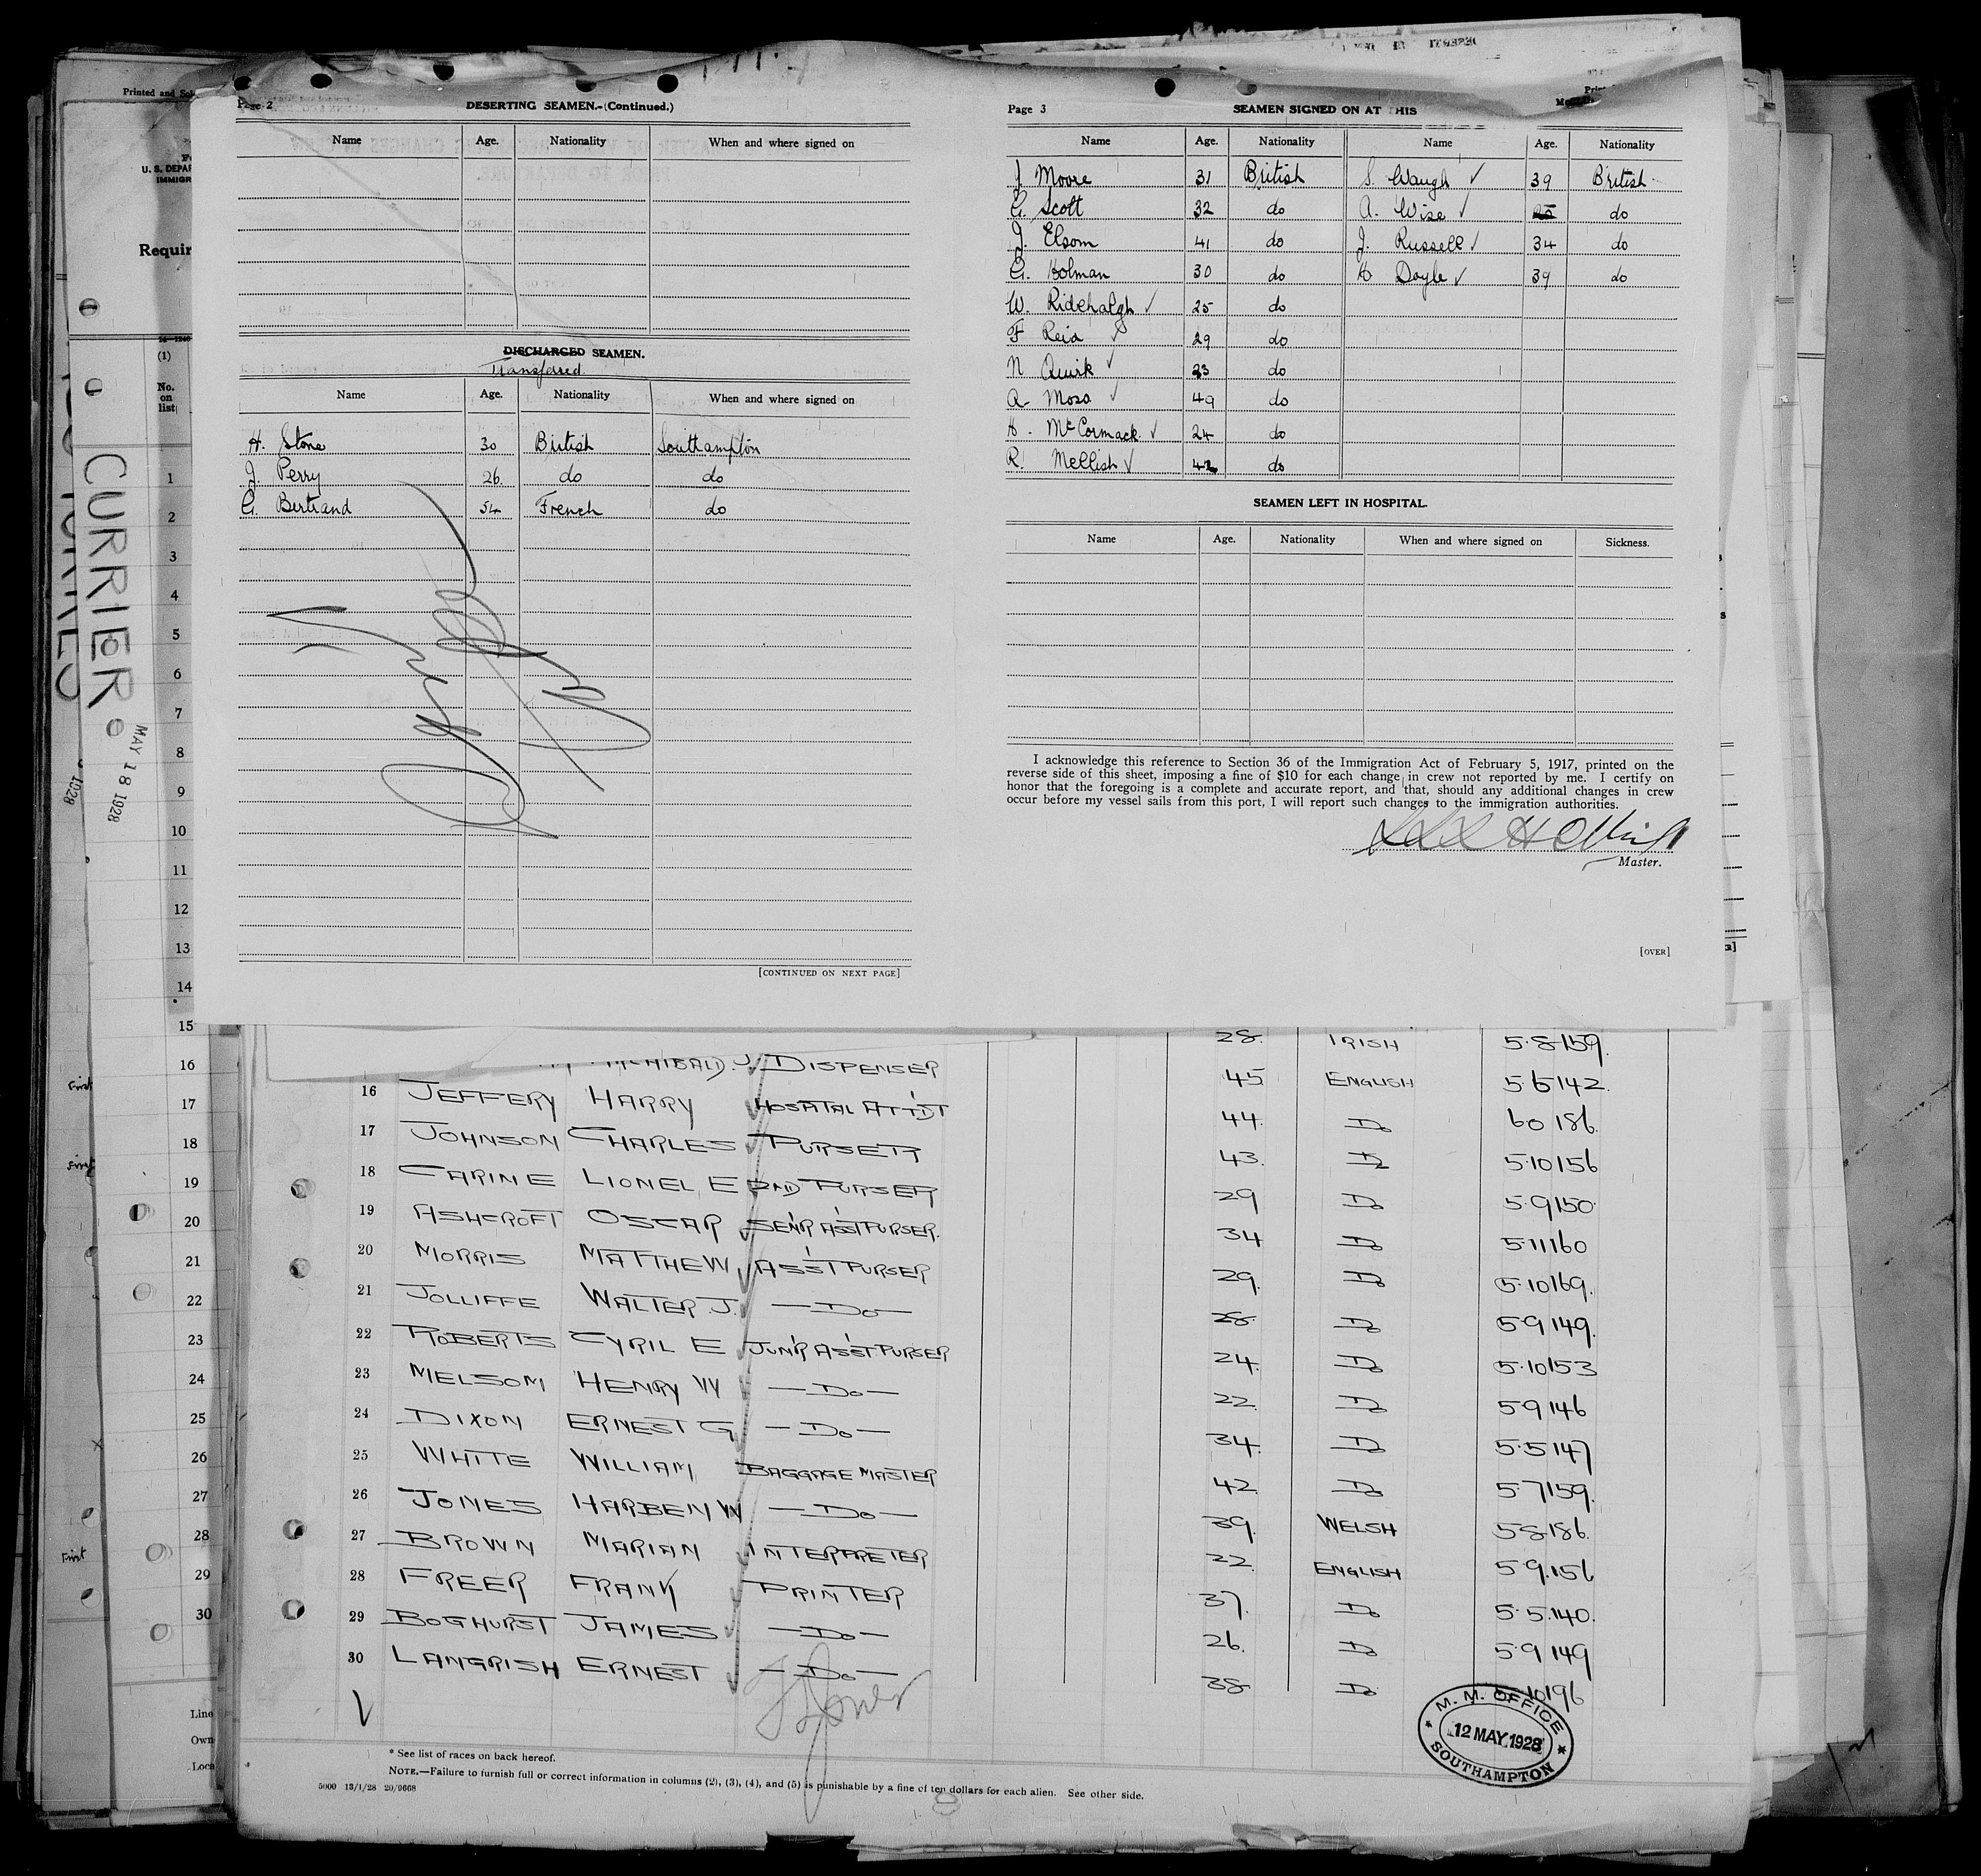 Printed and Sol
U. S. DEPAR
IMMIGR
Requir
(1)
No.
on
list
CURRIER
MAY 18 1928
1928
Page 2
DESERTING SEAMEN.-(Continued.)
Name Age. Nationality When and where signed on
DISCHARGED SEAMEN.
Transferred
Name Age. Nationality When and where signed on
H. Stone 30 British Southampton
J. Perry 26 do do
G. Bertrand 54 French do
[CONTINUED ON NEXT PAGE]
Page 3
SEAMEN SIGNED ON AT THIS
Name Age. Nationality Name Age. Nationality
J. Moore 31 British S. Waugh ✓ 39 British
G. Scott 32 do A. Wise ✓ do
J. Elsom 41 do J. Russell ✓ 34 do
G. Holman 30 do H Doyle ✓ 39 do
W. Ridehalgh ✓ 25 do
F Reid ✓ 29 do
N Quirk ✓ 23 do
A Moss ✓ 49 do
H. McCormack ✓ 24 do
R. Mellish ✓ 42 do
SEAMEN LEFT IN HOSPITAL.
Name Age. Nationality When and where signed on Sickness.
I acknowledge this reference to Section 36 of the Immigration Act of February 5, 1917, printed on the
reverse side of this sheet, imposing a fine of $10 for each change in crew not reported by me. I certify on
honor that the foregoing is a complete and accurate report, and that, should any additional changes in crew
occur before my vessel sails from this port, I will report such changes to the immigration authorities.
Master.
[OVER]
1
2
3
4
5
6
7
8
9
10
11
12
13
14
15
16
17
18
19
20
21
22
23
24
25
26
27
28
29
30
First
First
First
Line
Own
Loca
28. IRISH 5·8 159.
ARCHIBALD. J. DISPENSER 45 ENGLISH 5·6 142.
16 JEFFERY HARRY HOSPITAL ATT'DT 44. Do 6 0 186.
17 JOHNSON CHARLES PURSER 43. Do 5·10 156
18 CARINE LIONEL E 2ND PURSER 29 Do 5·9 150
19 ASHCROFT OSCAR SEN'R ASS'T PURSER. 34 Do 5·11 160
20 MORRIS MATTHEW ASS'T PURSER 29. Do 5·10 169.
21 JOLLIFFE WALTER J. —Do— 28. Do 5·9 149.
22 ROBERTS CYRIL E JUN'R ASS'T PURSER 24. Do 5·10 153
23 MELSOM HENRY W —Do— 22. Do 5 9 146
24 DIXON ERNEST G —Do— 34. Do 5·5 147
25 WHITE WILLIAM BAGGAGE MASTER 42. Do 5·7 159.
26 JONES HARBEN W —Do— 39. WELSH 5 8 186.
27 BROWN MARIAN INTERPRETER 22. ENGLISH 5 9. 156
28 FREER FRANK PRINTER 37. Do 5· 5. 140.
29 BOGHURST JAMES —Do— 26. Do 5·9 149
30 LANGRISH ERNEST —Do— 38 Do 10 196
M. M. OFFICE
12 MAY 1928
SOUTHAMPTON
* See list of races on back hereof.
NOTE.—Failure to furnish full or correct information in columns (2), (3), (4), and (5) is punishable by a fine of ten dollars for each alien. See other side.
5000 13/1/28 20/9668